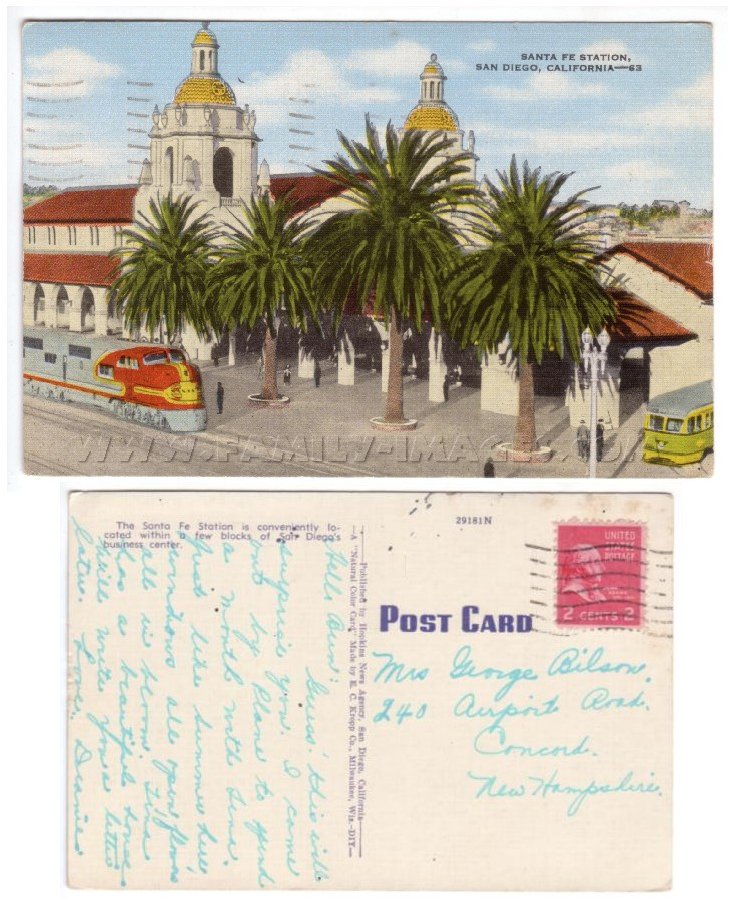 SANTA FE STATION,
SAN DIEGO, CALIFORNIA—63
WWW.FAMILY-IMAGES.COM
The Santa Fe Station is conveniently lo-
cated within a few blocks of San Diego's
business center.
29181N
—Published by Hopkins News Agency, San Diego, California—
—A "Natural Color Card" Made by E. C. Kropp Co., Milwaukee, Wis.—DIY—
POST CARD
UNITED
STATES
POSTAGE
2 CENTS 2
Mrs George Bilson.
240 Airport Road.
Concord.
New Hampshire.
Hello Aunt:
Guess this will
surprise you. I came
out by plane to spend
a month with
Just like summer here
windows all open flowers
all in bloom.
has a beautiful home
will write you a letter
later. Love. Deanie